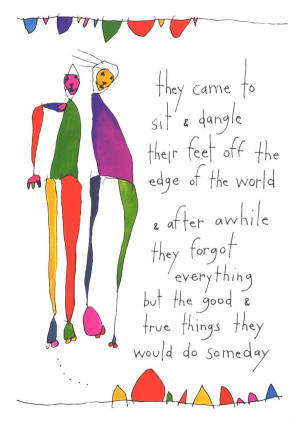 they came to
sit & dangle
their feet off the
edge of the world
& after awhile
they forgot
everything
but the good &
true things they
would do someday